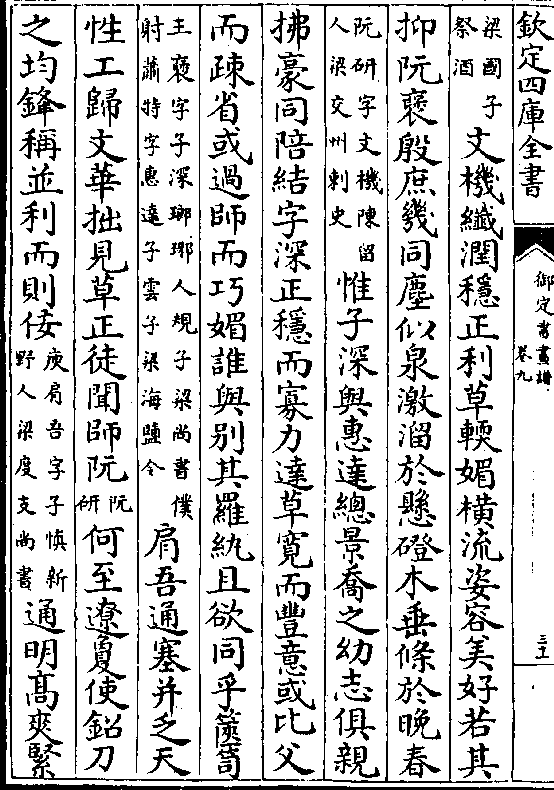 欽定四庫全書
御定書畫譜
卷九
梁國子
祭酒
文機纎潤穩正利草輭媚橫流姿容美好若其
抑阮褒殷庶幾同塵似泉激溜於懸磴木垂條於晚春
阮研字文機陳留
人梁交州刺史
惟子深與惠達總景喬之幼志俱親
拂豪同陪結字深正穩而寡力達草寛而豐意或比父
而疎省或過師而巧媚誰與别其羅紈且欲同乎篋笥
王褒字子深瑯琊人規子梁尚書僕
射蕭特字惠達子雲子梁海鹽令
肩吾通塞并乏天
性工歸文華拙見草正徒聞師阮
阮
研
何至遼敻使鈆刀
之均鋒稱並利而則佞
庾肩吾字子慎新
野人梁度支尚書
通明髙爽緊